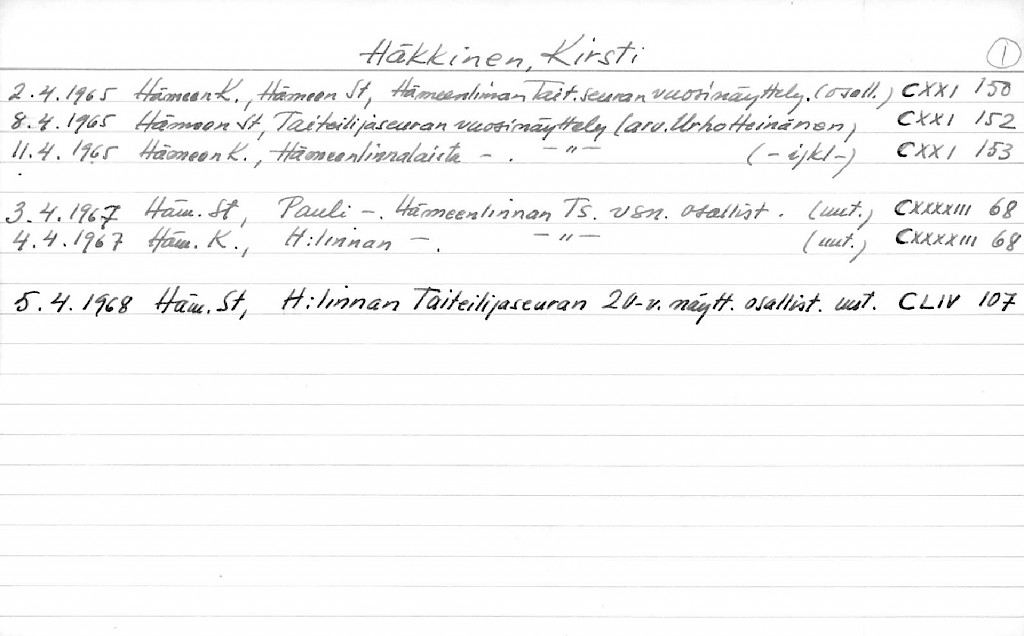 Häkkinen, Kirsti 1
2.4.1965 Hämeen K., Hämeen St, Hämeenlinnan Tait.seuran vuosinäyttely. (osall.) CXXI 150
8.4.1965 Hämeen St, Taiteilijaseuran vuosinäyttely (arv. Urho Heinänen) CXXI 152
11.4.1965 Hämeen K., Hämeenlinnalaista - . - " - (- ijkl -) CXXI 153
3.4.1967 Häm. St, Pauli -. Hämeenlinnan Ts. vsn. osallist. (uut.) CXXXXIII 68
4.4.1967 Häm. K., H:linnan -. - " - (uut.) CXXXXIII 68
5.4.1968 Häm. St, H:linnan Taiteilijaseuran 20-v. näytt. osallist. uut. CLIV 107